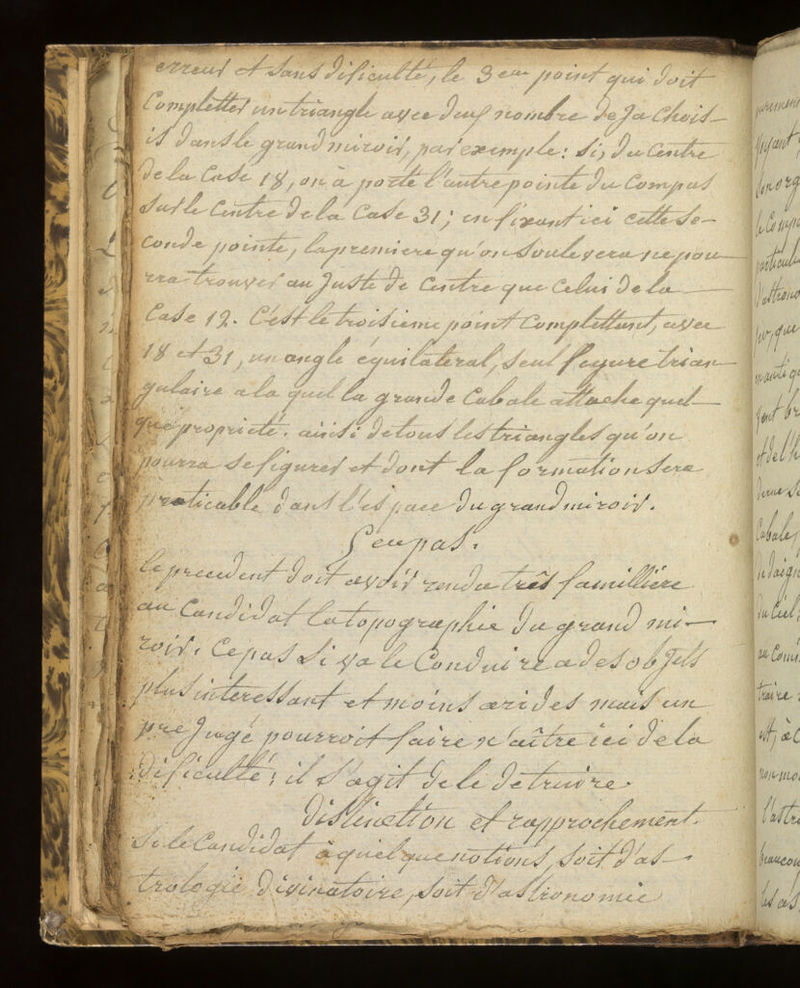 erreur et sans dificulté, le 3eme point qui doit
Completter un triangle avec deux nombre deja chois-
is dans le grand miroir, par exemple: si, du Centre
de la Case 18, on a porté l'autre pointe du Compas
sur le Centre de la Case 31; en fixant ici cette se-
conde pointe, la premiere qu'on soulevera ne pou-
rra trouver au juste de Centre que Celui de la
Case 12. C'est le troisieme point Complettant, avec
18 et 31, un angle équilateral, seul figure trian-
gulaire a la quel la grande Cabale attache quel-
que propriété. ainsi de tous les triangles qu'on
pourra se figurer et dont la formation sera
praticable dans l'espace du grand miroir.
5 eme pas.
le precedent doit avoir rendu trés famillière
au Candidat la topographie du grand mi-
roir. Ce pas si va le Conduire a des objets
plus interessant et moins arides mais un
prejugé pourroit faire n'aître ici de la
dificulté; il s'agit de le detruire.
Distinction et rapprochement.
Si le Candidat a quelque notions, soit d'as-
trologie divinatoire, soit d'astronomie